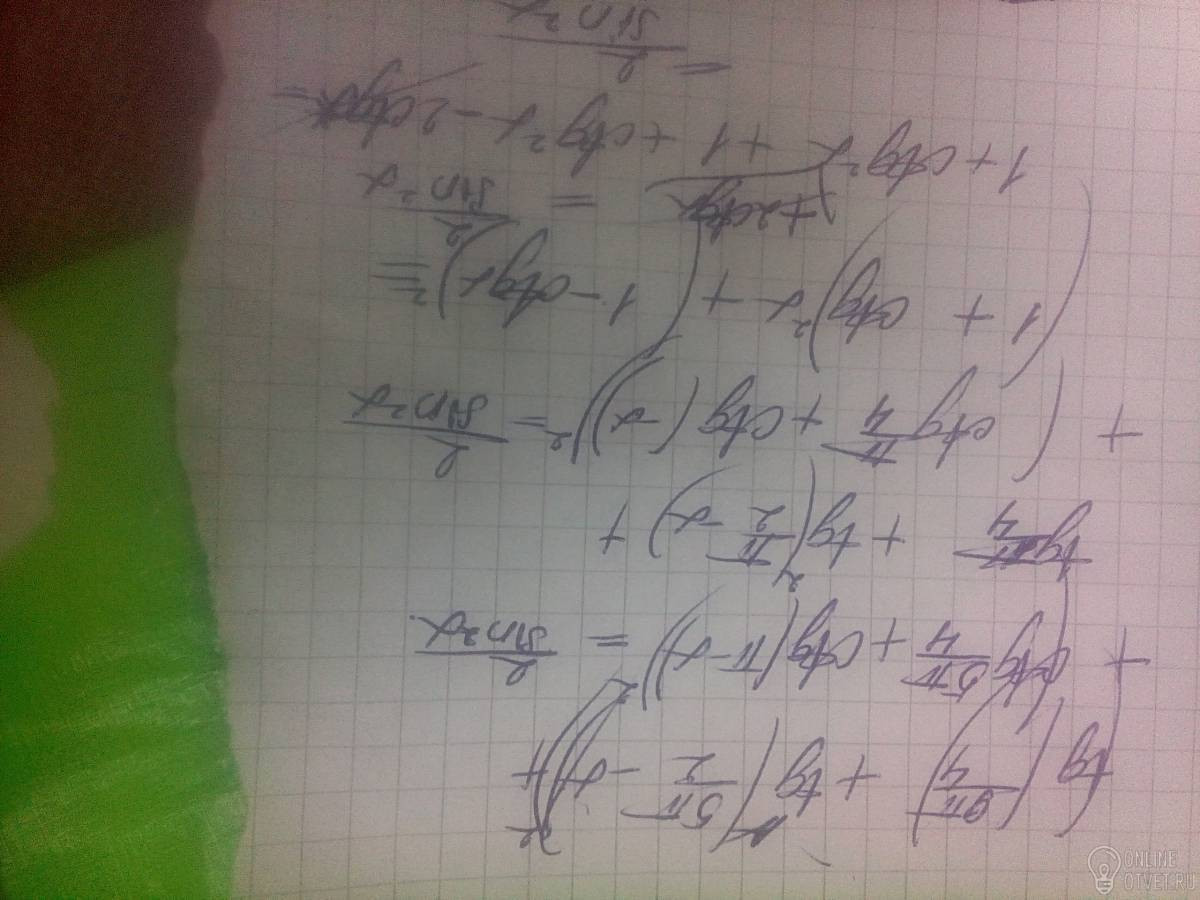 (tg(9π/4) + tg(5π/2 - α))² +
+ (ctg 5π/4 + ctg(π - α))² = 2/sin²α
(tg π/4 + tg(π/2 - α))² +
+ (ctg π/4 + ctg(-α))² = 2/sin²α
(1 + ctgα)² + (1 - ctgα)² =
+2ctgα = 2/sin²α
1 + ctg²α + 1 + ctg²α - 2ctgα =
= 2/sin²α
ONLINE
OTVET.RU